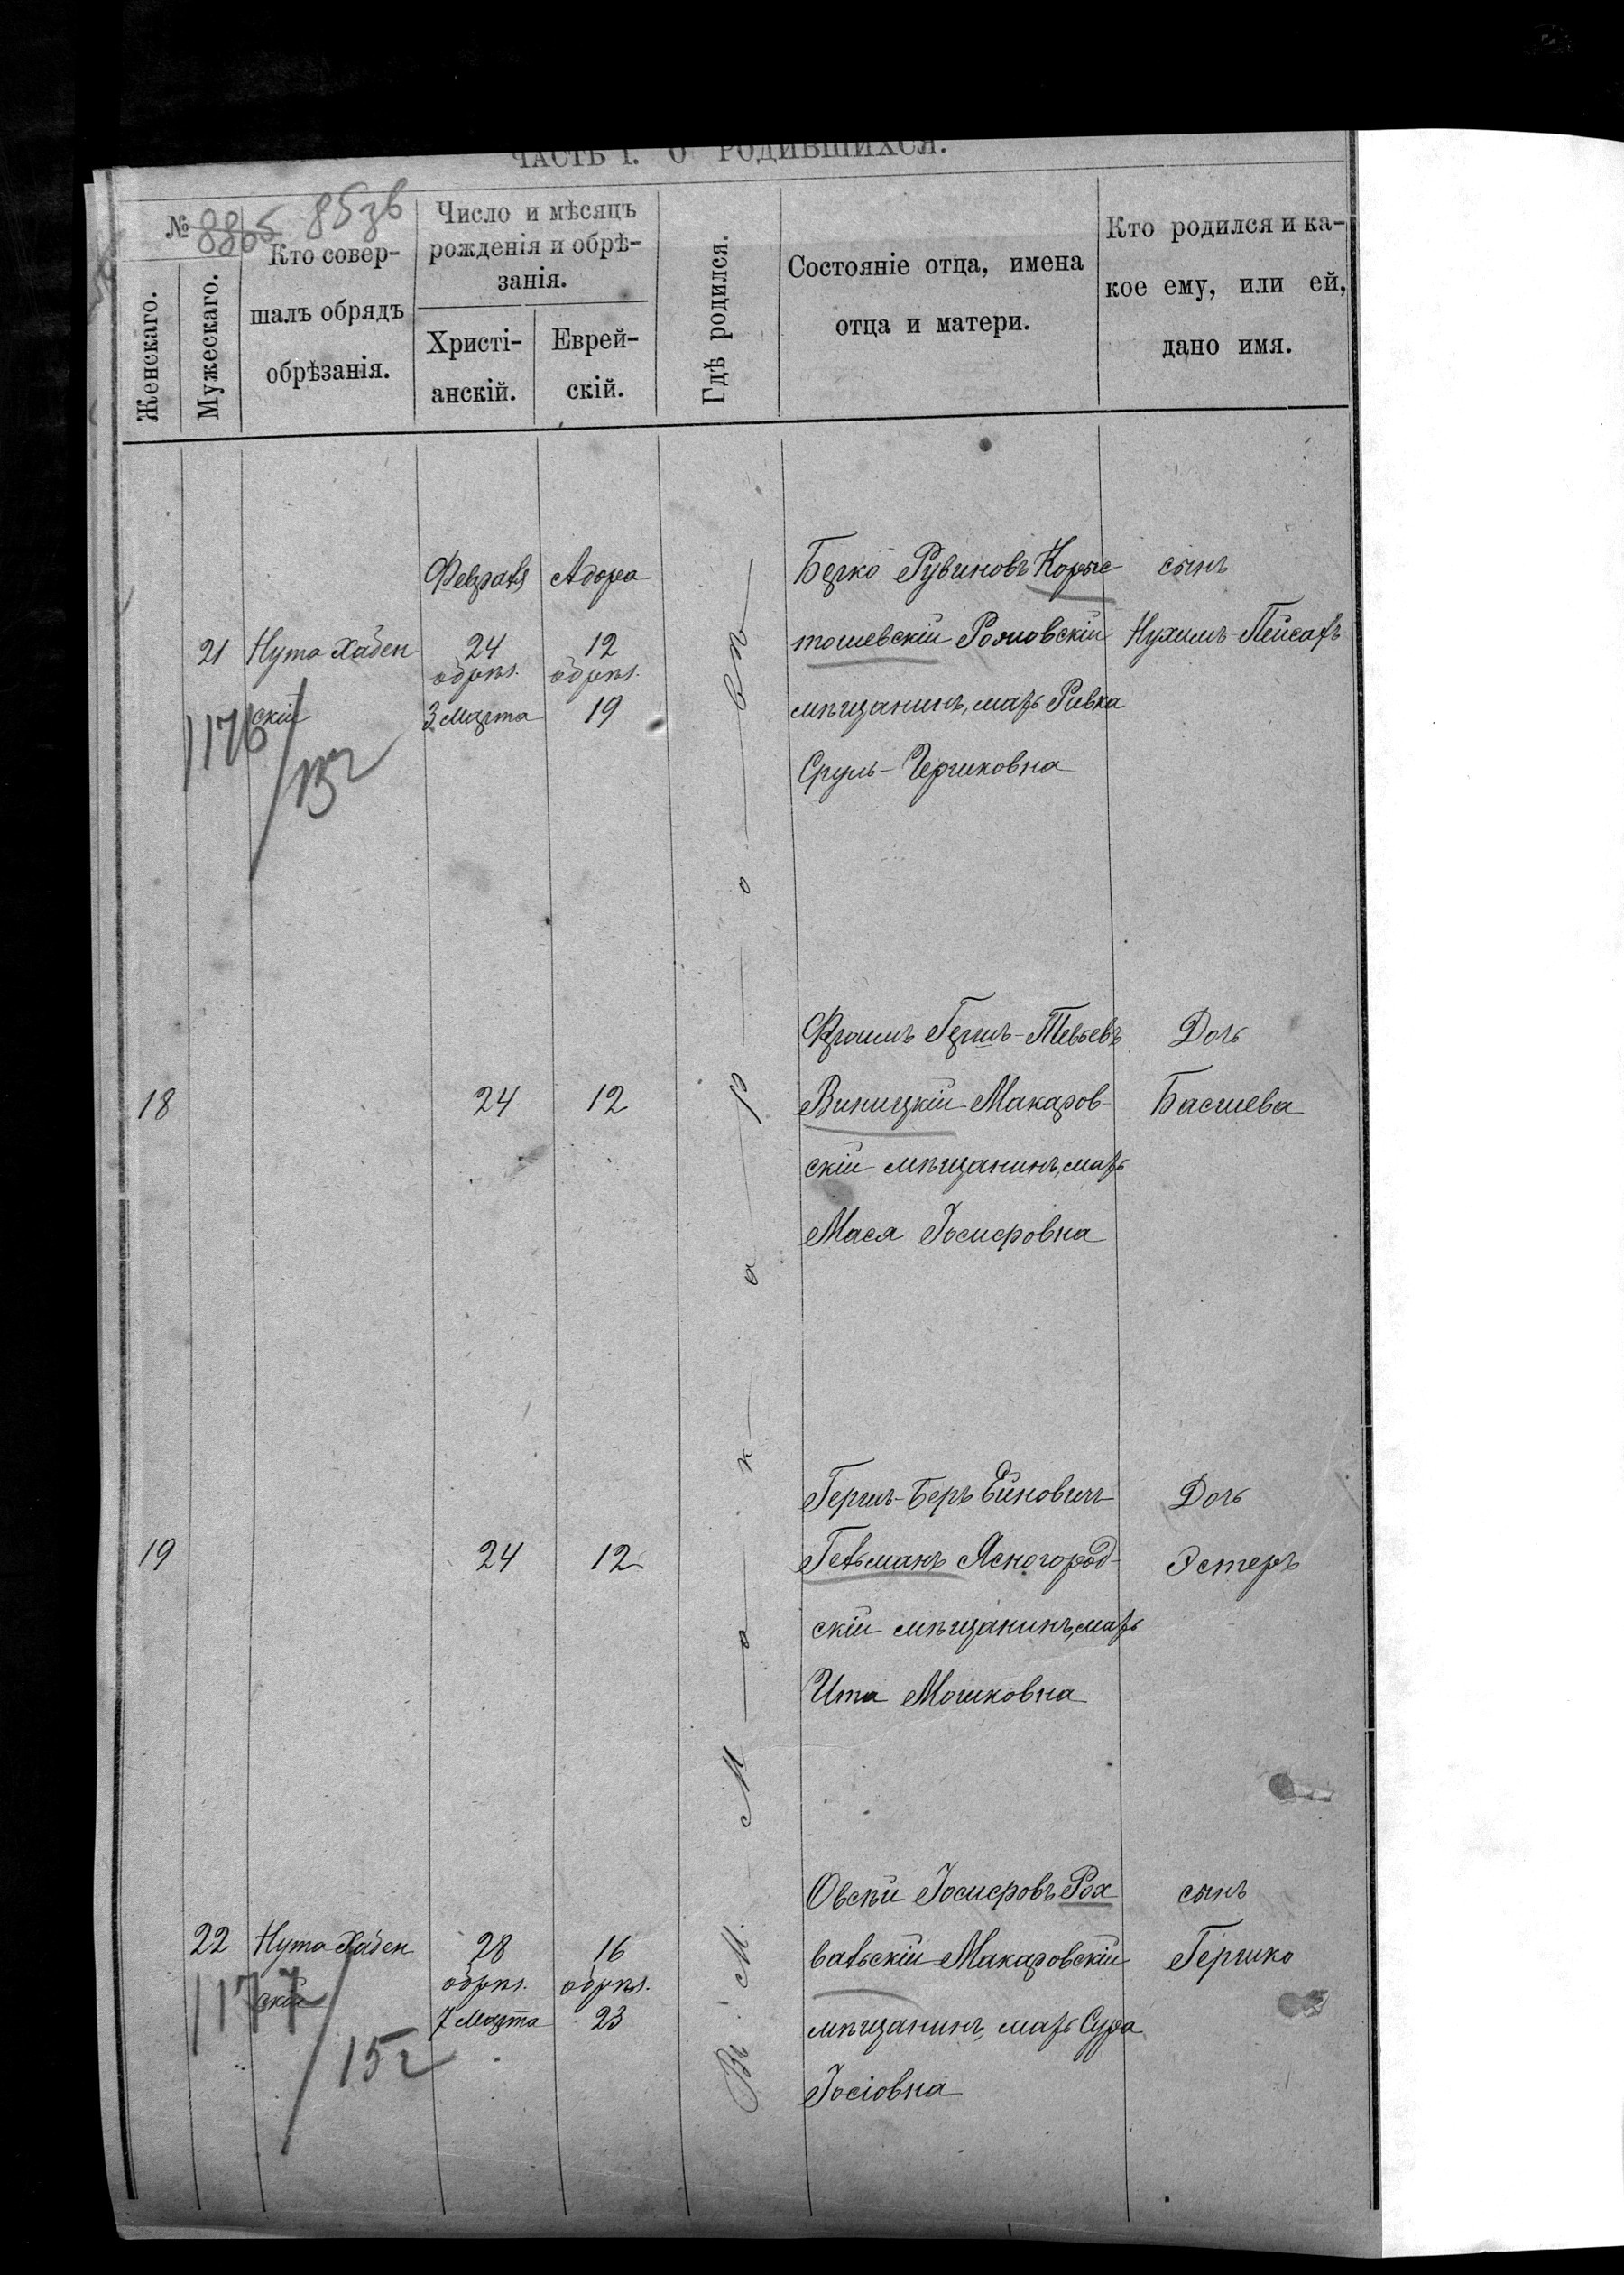 ЧАСТЬ I. О РОДИВШИХСЯ.
№
8865 85зв
Женскаго.
Мужескаго.
Кто совер-
шалъ обрядъ
обрѣзанія.
Число и мѣсяцъ
рожденія и обрѣ-
занія.
Христі-
анскій.
Еврей-
скій.
Гдѣ родился.
Состояніе отца, имена
отца и матери.
Кто родился и ка-
кое ему, или ей,
дано имя.
Въ М. Макаровѣ
Февраля Адора
21 Нута Хабен
скій
24 12
обрѣз. обрѣз.
3 Марта 19
1176
Берко Рувиновъ Коры
тошевскій
мѣщанинъ, мать Ривка
Сруль-Гершковна
сынъ
Нухимъ-Пейсахъ
18 24 12
Фроимъ Гершъ-Тевьевъ
Виницкій Макаров-
скій мѣщанинъ, мать
Мася Іосифовна
Дочь
Басшева
19 24 12
Гершъ-Беръ Ейновичъ
Гетьманъ Ясногород-
скій мѣщанинъ, мать
Ита Мошковна
Дочь
Эстеръ
22 Нута Хабен
скій
28 16
обрѣз. обрѣз.
7 Марта 23
1177
15г
Овсѣй Іосифовъ Рох
вальскій Макаровскій
мѣщанинъ, мать Сура
Іосіовна
сынъ
Гершко